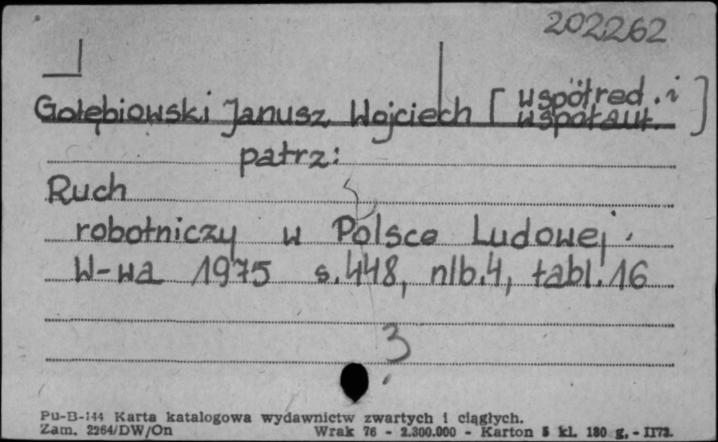 202262
Gołębiowski Janusz Wojciech [współred. i współaut.]
patrz:
Ruch
robotniczy w Polsce Ludowej.
W-wa 1975 s.448, nlb.4, tabl.16
3
Pu-B-144 Karta katalogowa wydawnictw zwartych i ciągłych.
Zam. 2264/DW/On Wrak 76 - 2.300.000 - Karton 5 kl. 180 g. - II73.